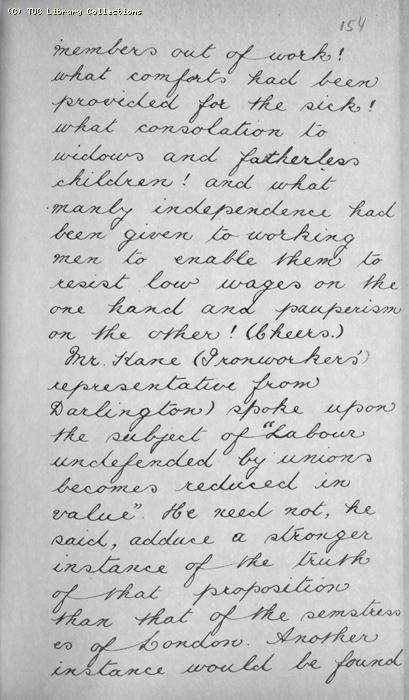 (C) TUC Library Collections
154
members out of work!
what comforts had been
provided for the sick!
what consolation to
widows and fatherless
children! and what
manly independence had
been given to working
men to enable them to
resist low wages on the
one hand and pauperism
on the other! (Cheers.)
Mr. Kane (Ironworkers'
representative from
Darlington) spoke upon
the subject of "Labour
undefended by unions
becomes reduced in
value". He need not, he
said, adduce a stronger
instance of the truth
of that proposition
than that of the semstress
es of London. Another
instance would be found